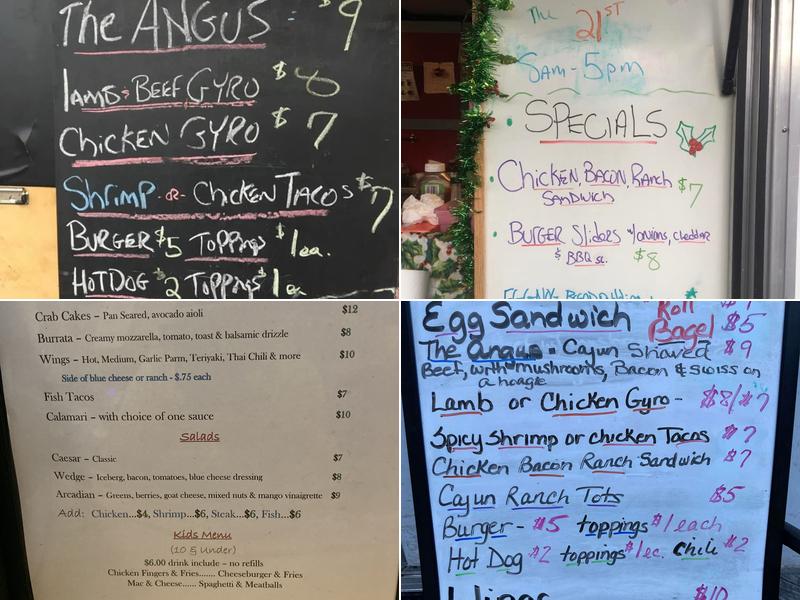 The ANGUS - $9
Lamb & Beef GYRO $8
Chicken GYRO $7
Shrimp -or- Chicken Tacos $7
Burger $5 Toppings $1ea.
HOTDOG $2 Toppings $1ea
The 21ST
8am - 5pm
SPECIALS
Chicken, Bacon, Ranch $7
Sandwich
Burger Sliders w/onions, cheddar
& BBQ sc. $8
Crab Cakes – Pan Seared, avocado aioli $12
Burrata – Creamy mozzarella, tomato, toast & balsamic drizzle $8
Wings – Hot, Medium, Garlic Parm, Teriyaki, Thai Chili & more $10
Side of blue cheese or ranch - $.75 each
Fish Tacos $7
Calamari – with choice of one sauce $10
Salads
Caesar – Classic $7
Wedge – Iceberg, bacon, tomatoes, blue cheese dressing $8
Arcadian – Greens, berries, goat cheese, mixed nuts & mango vinaigrette $9
Add: Chicken...$4, Shrimp...$6, Steak...$6, Fish...$6
Kids Menu
(10 & Under)
$6.00 drink include – no refills
Chicken Fingers & Fries....... Cheeseburger & Fries
Mac & Cheese...... Spaghetti & Meatballs
Egg Sandwich Roll
Bagel $5
The Angus - Cajun Shaved $9
Beef, with mushrooms, Bacon & Swiss on
a hoagie
Lamb or Chicken Gyro - $8/$7
Spicy Shrimp or chicken Tacos $7
Chicken Bacon Ranch Sandwich $7
Cajun Ranch Tots $5
Burger - $5 toppings $1 each
Hot Dog $2 toppings $1ec. chili $2
Wings $10